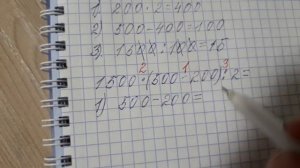 1) 200 · 2 = 400
2) 500 - 400 = 100
3) 1500 : 100 = 15
2 1 3
1500 : (500 - 200) · 2 =
1) 500 - 200 =